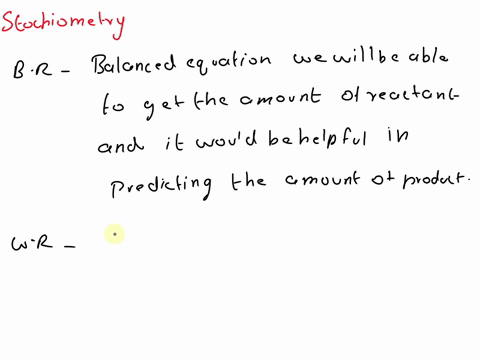 Stochiometry
B.R - Balanced equation we will be able
to get the amount of reactant
and it would be helpful in
predicting the amount of product.
W.R -